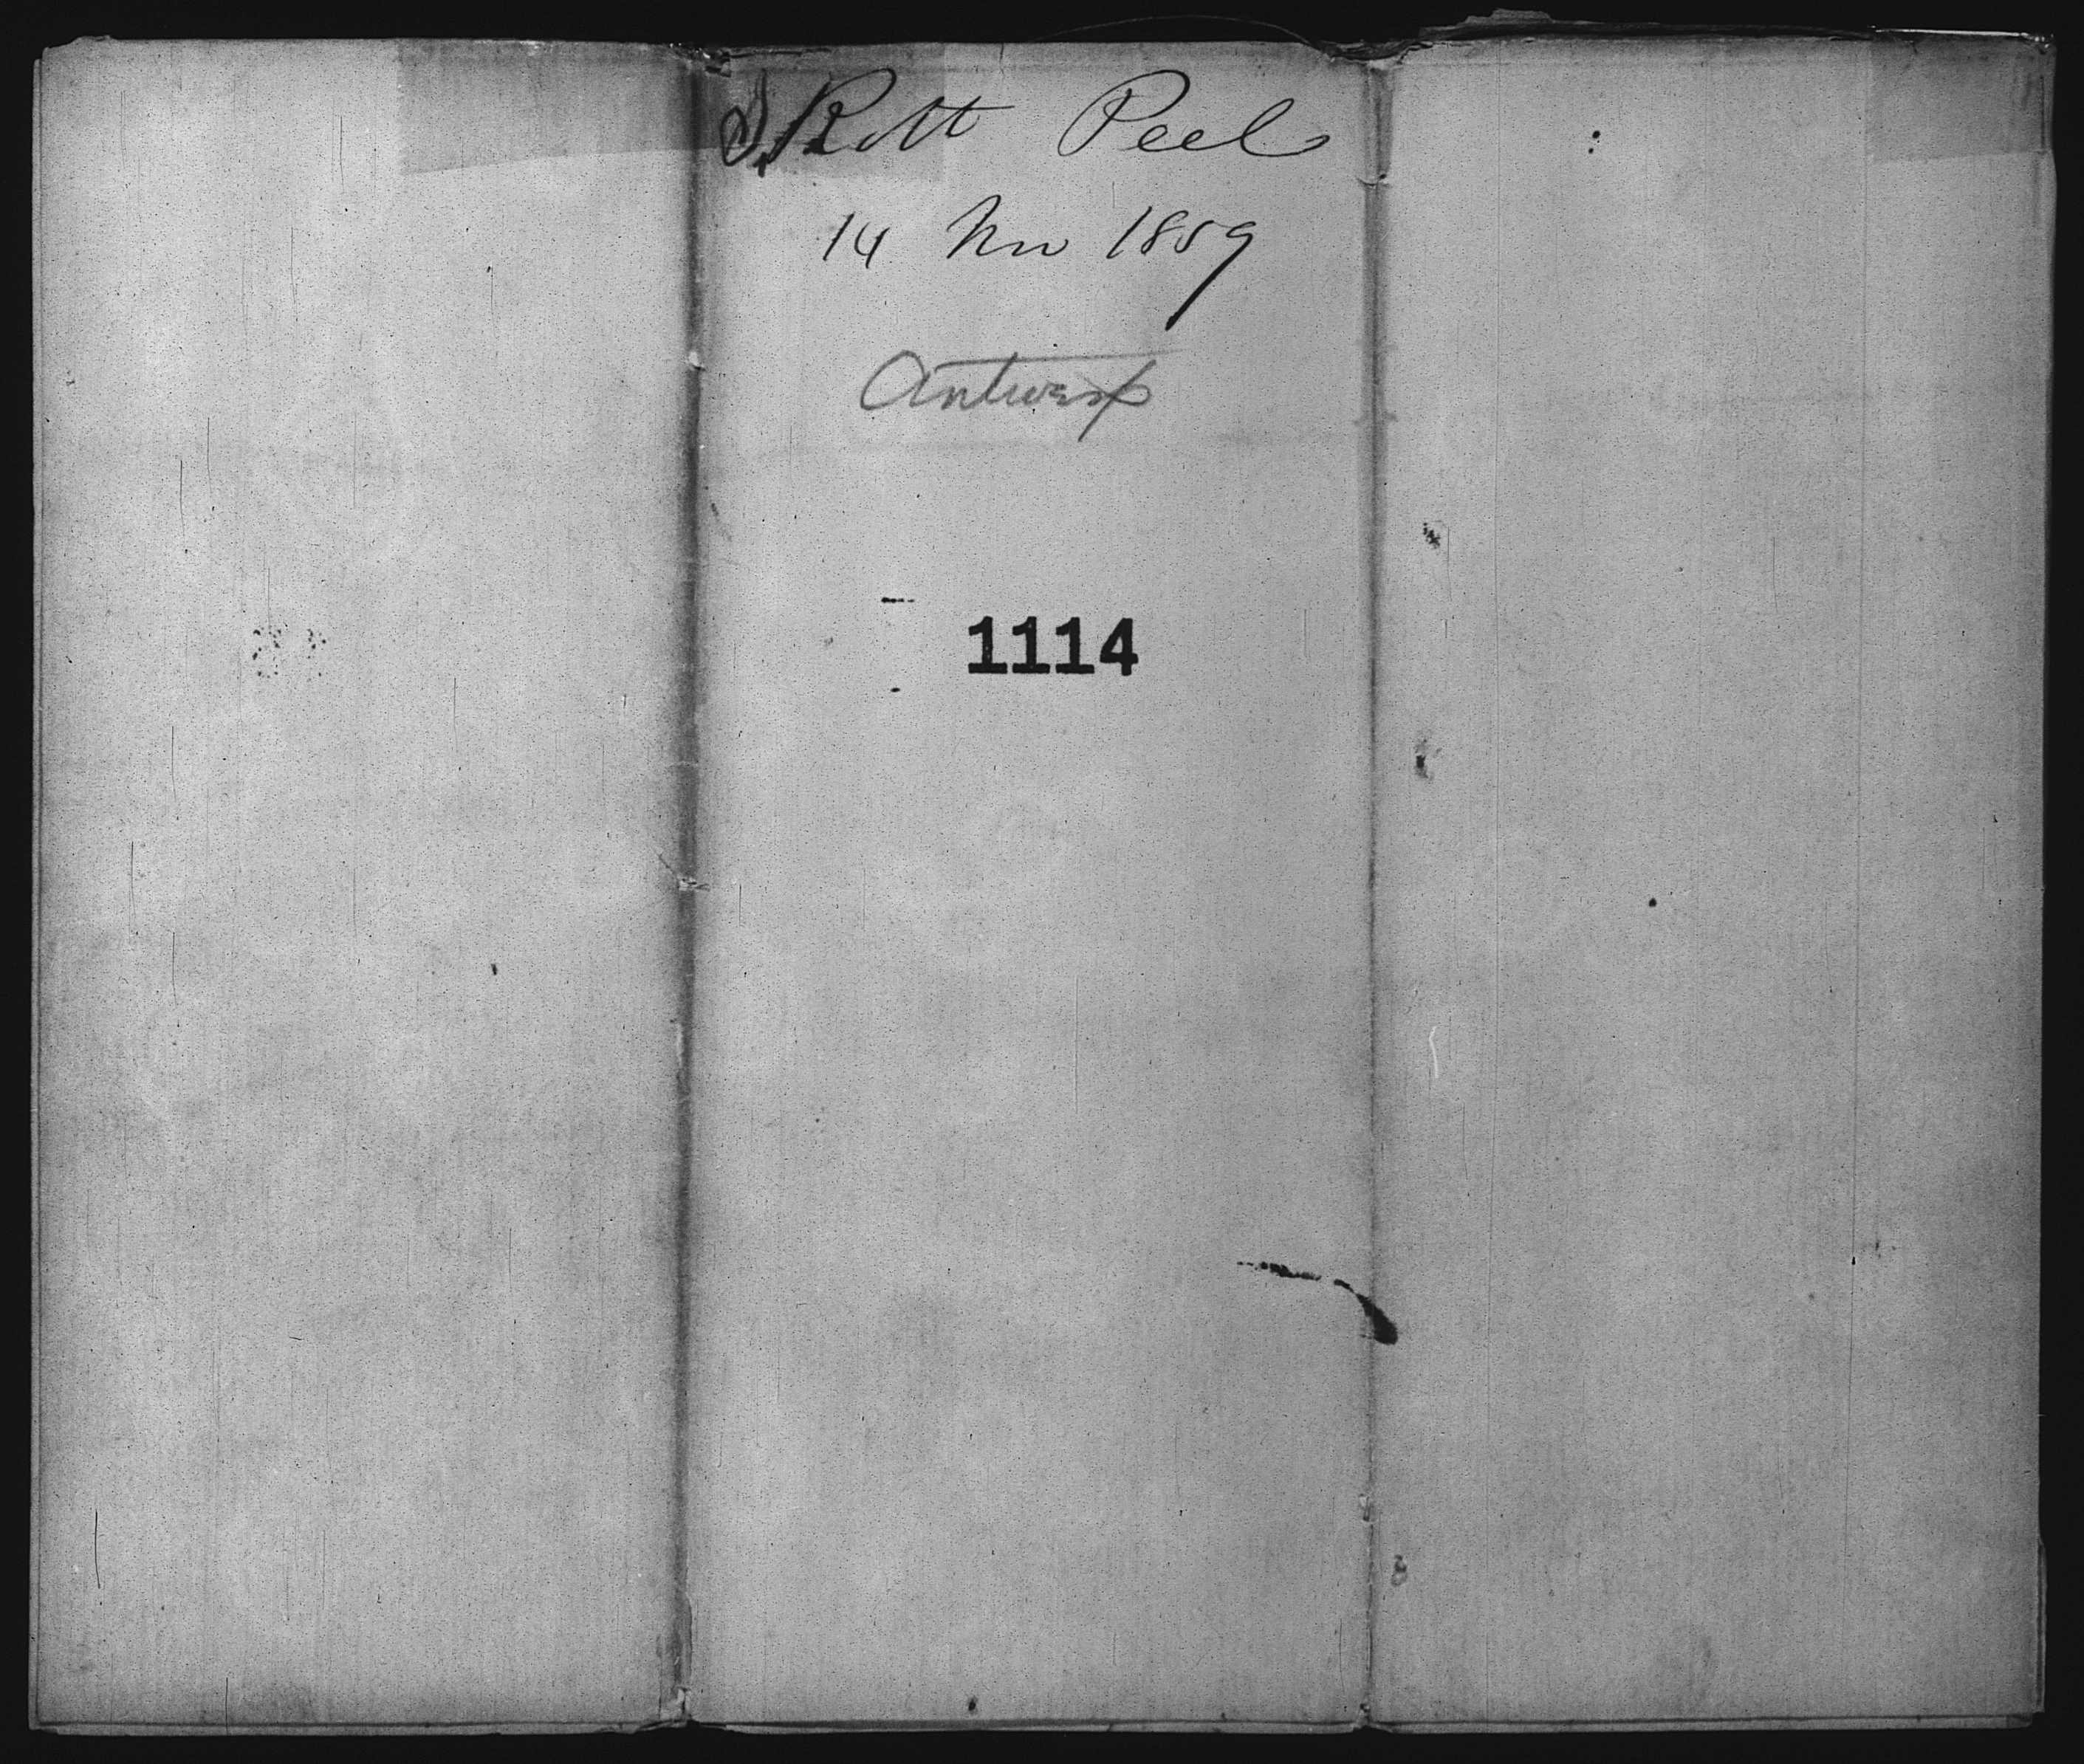 S. Rott Peel
14 Nov 1859
Antwerp
1114